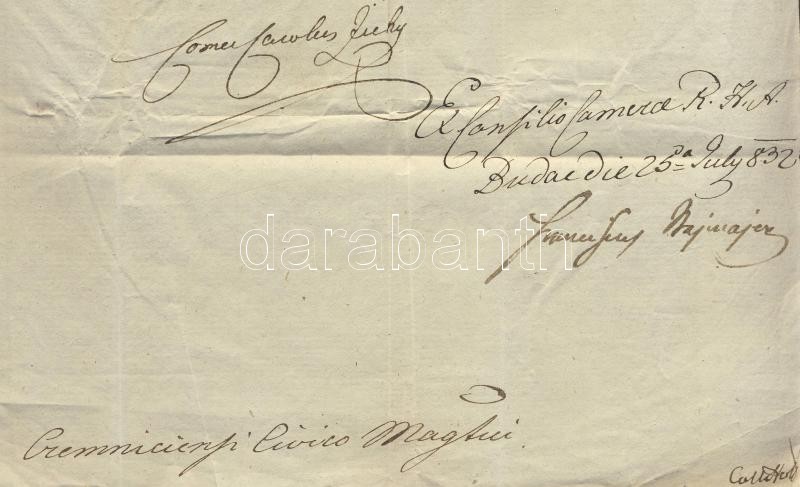 Comes Carolus Zichy
Ex Consilio Camerae R. H. A.
Budae die 25ª July 832
Franciscus
darabanth
Cremniciensi Civico Magtui